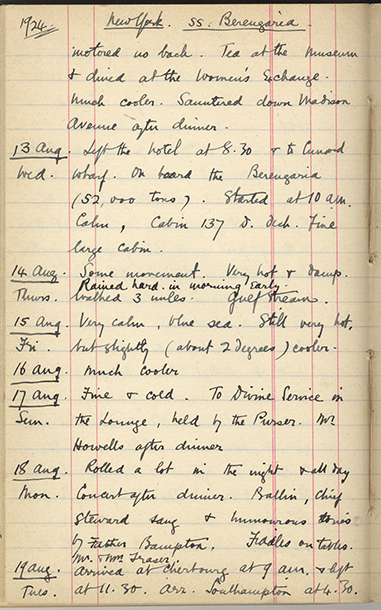 1924. New York. SS. Berengaria.
motored us back. Tea at the Museum
& dined at the Women's Exchange.
Much cooler. Sauntered down Madison
Avenue after dinner.
13 Aug. Left the hotel at 8.30 & to Cunard
Wed. wharf. On board the Berengaria
(52,000 tons). Started at 10 a.m.
Calm, Cabin 137 D. Deck. Fine
large cabin.
14 Aug. Some movement. Very hot & damp.
Rained hard in morning early.
Thurs. walked 3 miles. Gulf Stream.
15 Aug. Very calm, blue sea. Still very hot,
Fri. but slightly (about 2 degrees) cooler.
16 Aug. Much cooler
17 Aug. Fine & cold. To Divine Service in
Sun. the Lounge, held by the Purser. Mr
Howells after dinner
18 Aug. Rolled a lot in the night & all day
Mon. Concert after dinner. Ballin, Chief
Steward sang & humourous
by Father Bampton. Fiddles on tables.
Mr. & Mrs Fraser.
19 Aug. Arrived at Cherbourg at 9 a.m. & left
Tues. at 11.30. Arr. Southampton at 4.30.